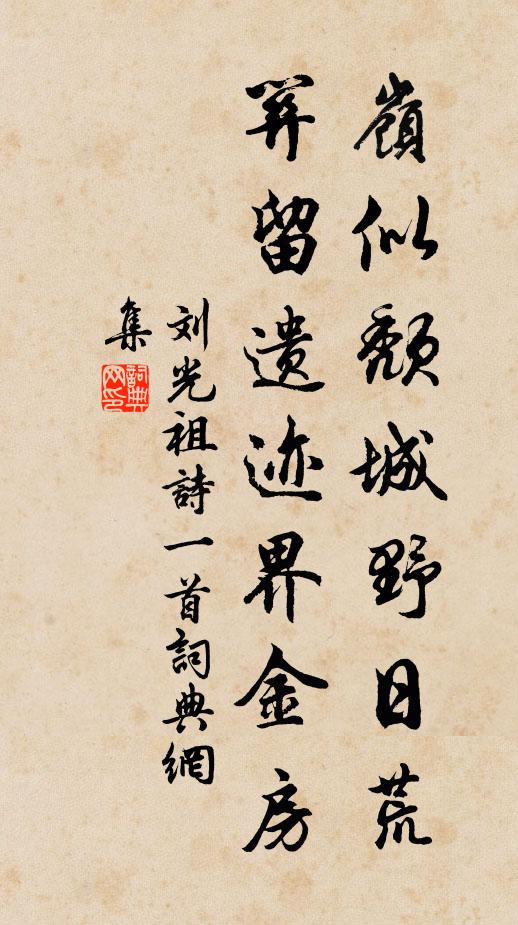 嶺似頽城野日荒
留遗迹界金房
刘光祖詩一首詞典網
集
詞典
网印